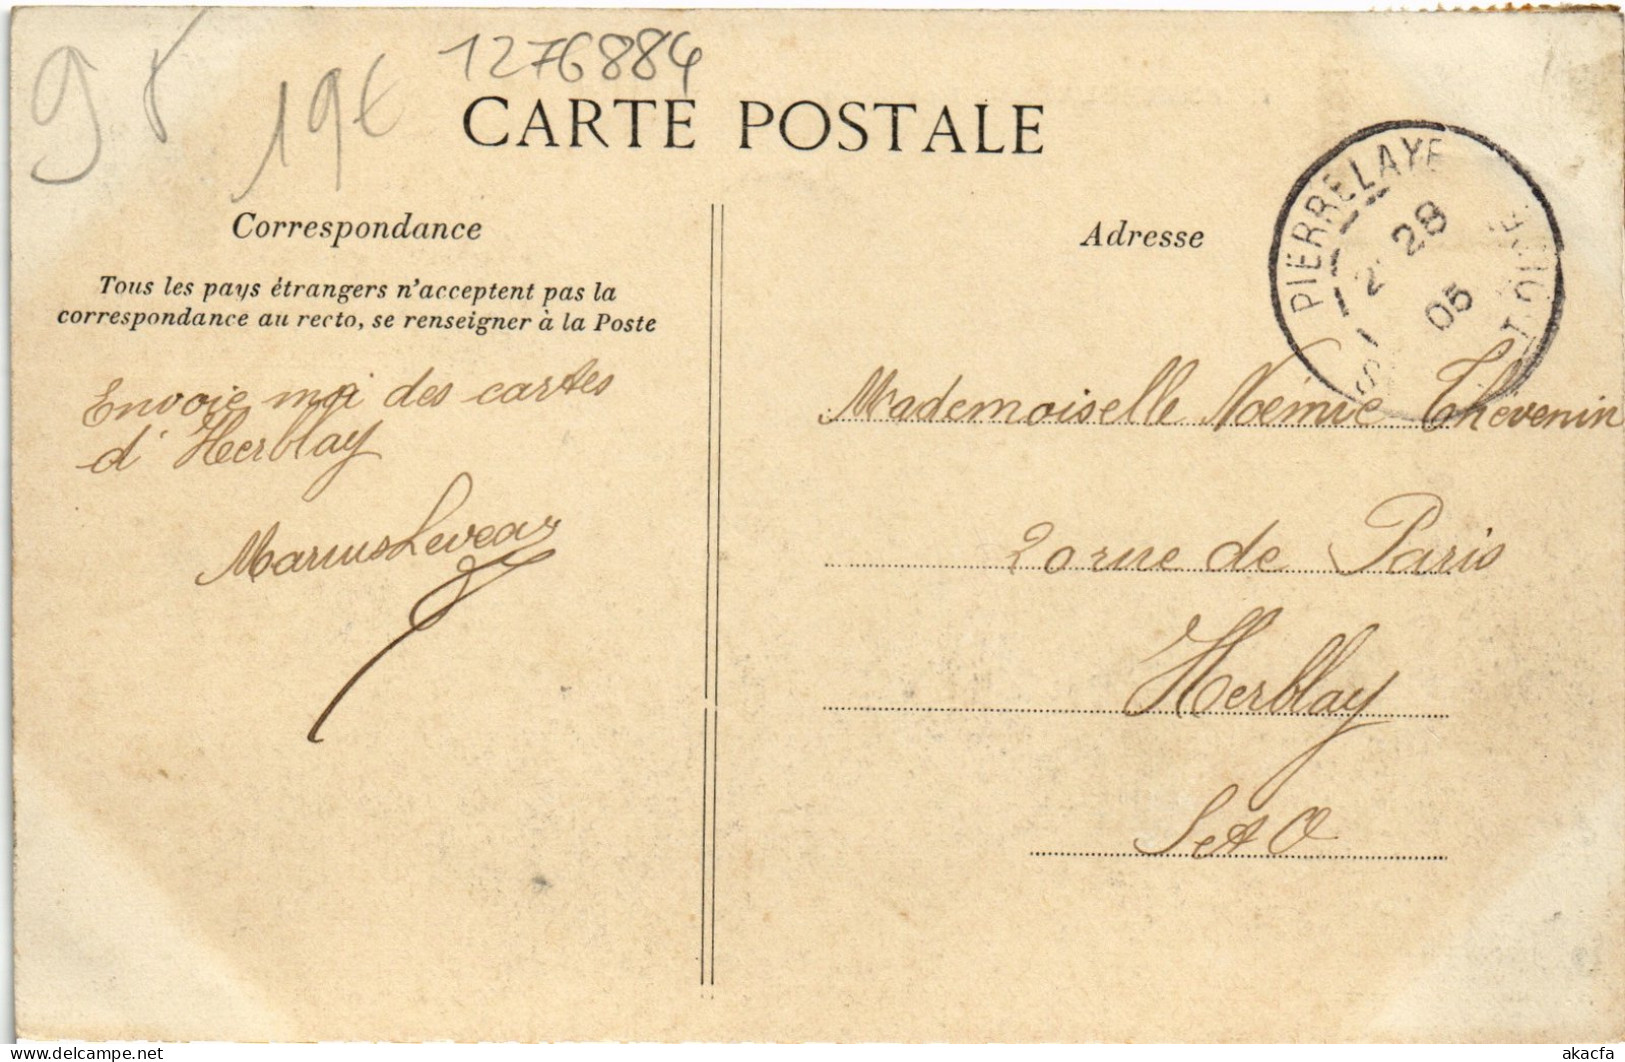 95
19€
1276884
CARTE POSTALE
Correspondance
Tous les pays étrangers n'acceptent pas la
correspondance au recto, se renseigner à la Poste
Envoie moi des cartes
d'Herblay
Marius Leveau
Adresse
PIERRELAYE
28
2
05
S. ET-OISE
Mademoiselle Noémie Thévenin
20 rue de Paris
Herblay
S et O
akacfa